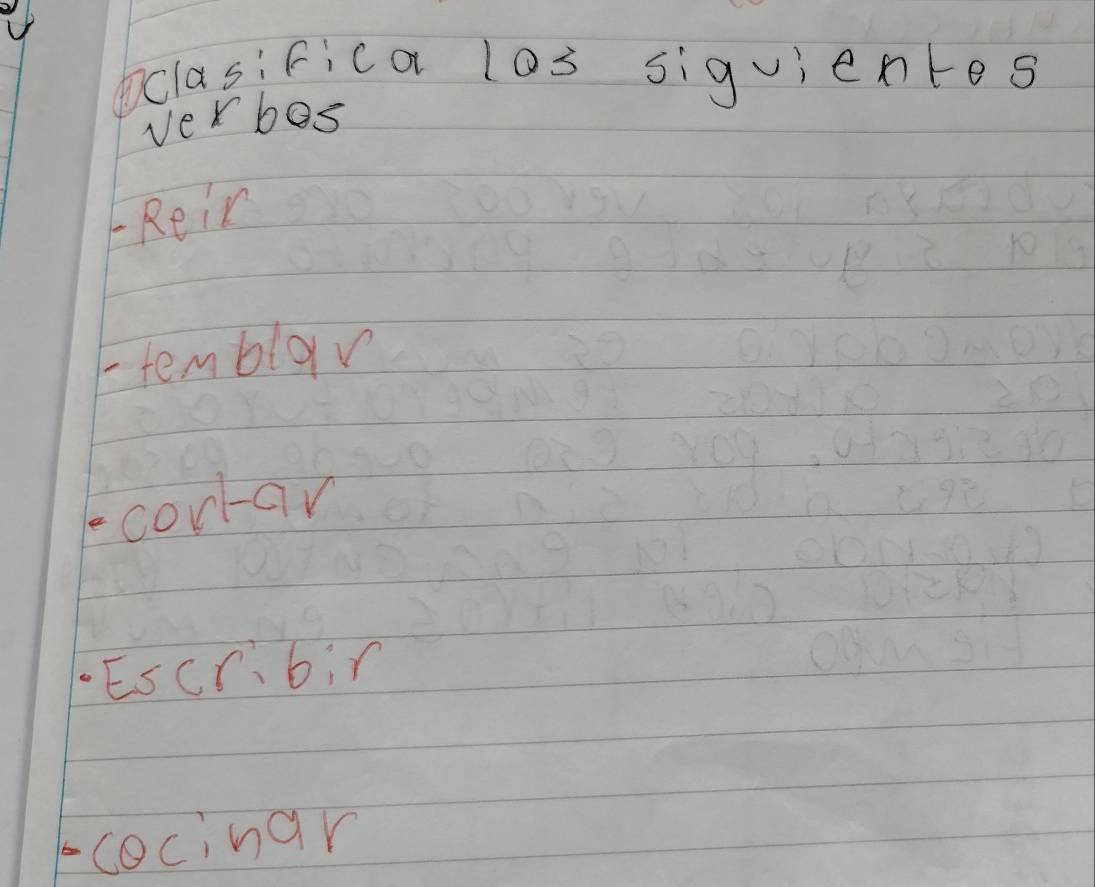 ① Clasifica los siguientes
verbos
- Reir
- temblar
• cortar
• Escribir
- cocinar